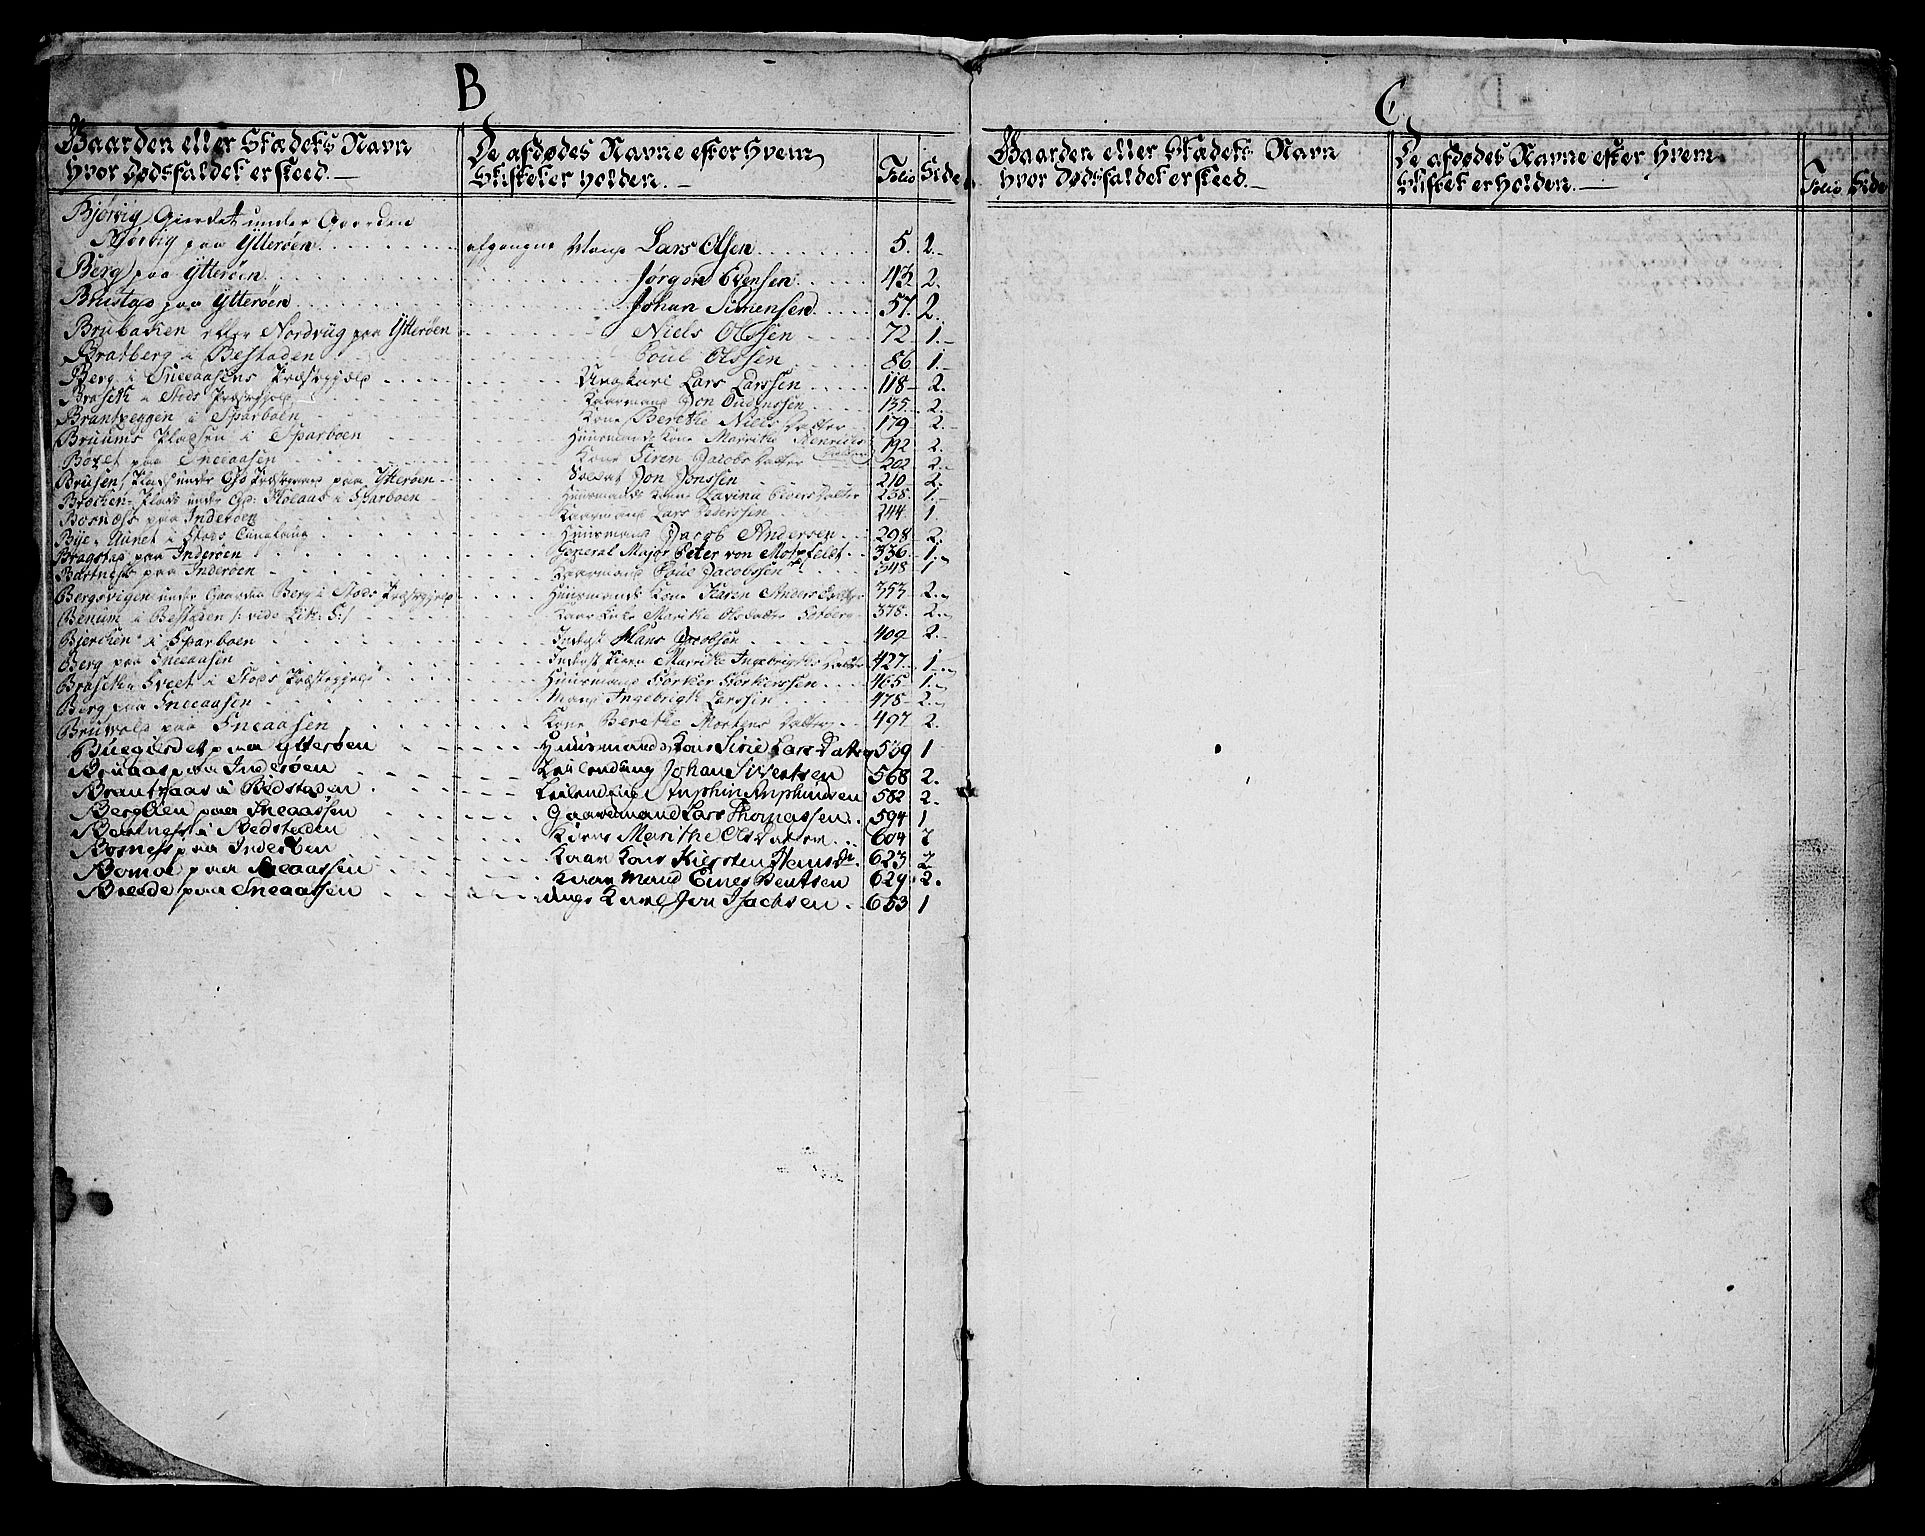 B
Gaarden eller Stædets Navn
hvor Dødsfaldet er skeed.—
De afdødes Navne efter hvem
Skiftet er holden.—
Folio Side
Bjørvig Gierdet under Gaarden
Bjørvig paa Ytterøen afgangne Mons. Lars Olsen 5. 2.
Berg paa Ytterøen Jørgen Evensen 43. 2.
Brustad paa Ytterøen Johan Simensen 57. 2.
Brubakken eller Nordvug paa Ytterøen Niels Olssen 72. 1.
Bratberg i Bestaden Poul Olssen 86 1.
Berg i Sneeaasens Præstegjæld Ungkarl Lars Larssen 118. 2.
Braseth i Stods Præstegjæld Kaarmand Jon Oudenssen 135. 2.
Brantzeggen i Sparboen Kone Berethe Niels Datter 179. 2.
Bruums Pladsen i Sparboen Huusmands Kone Marrithe Henrichs 192 2.
Børet paa Sneeaasen Kone Siren Jacobs Datter 202 2.
Brusen, Plads under Præstegaard paa Ytterøen Soldat Jon Jonssen 210 2.
Brochen Plads under i Sparboen Huusmands Kone Lavina Peders Datter 238. 1.
Bosnæs paa Inderøen Kaarmand Lars Pederssen 244. 1.
Bye Aunet i Stods Huusmand Jacob Andersen 298. 2.
Bragstad paa Inderøen General Major Peter von Motzfeldt 336. 1.
Bartness paa Inderøen Kaarmand Poul Jacobssen 348. 1
Bergsvigen under Gaarden Berg i Stods Præstegjeld Huusmands Kone Karen Anders Datter 353 2.
Benum i Bestaden /: vide Lit: S:/ Kaar Enke Marithe Olsdatter Solberg 378. 2.
Bierchen i Sparboen Inderst Hans Jacobsen 409 2.
Berg paa Sneeaasen Inderst Marrithe Ingebrigts Datter 427. 1.
Braseth Sveet i Stods Præstegjeld Huusmand Størker Størkerssen 465. 1.
Berg paa Sneeaasen Mand Ingebrigt Larssen 478. 2.
Bruvold paa Sneaasen Kone Berethe Mortens Datter 497 2.
Buegierdet paa Ytterøen Huusmands Kone Sirie Lars Datter 539 1
Bruaas paa Inderøen Leilending Johan Sivertsen 568 2.
Brantzaas i Bedstaden Leilending 582 2.
Berg Øien paa Sneaassen Gaardmand Lars Thomassen 594 1
Bertnes i Bedstaden Konen Marithe Ols Datter 604 2
Bosness paa Inderøen Kaar Kone Kiersten Hans Dr. 623 2
Bomoe paa Sneaassen Kaar Mand Eines Bentsen 629. 2.
Breede paa Sneaassen unge Karl Jon Isachsen 653 1
C
Gaarden eller Stædets Navn
hvor Dødsfaldet er skeed.—
De afdødes Navne efter hvem
Skiftet er holden.—
Folio Side